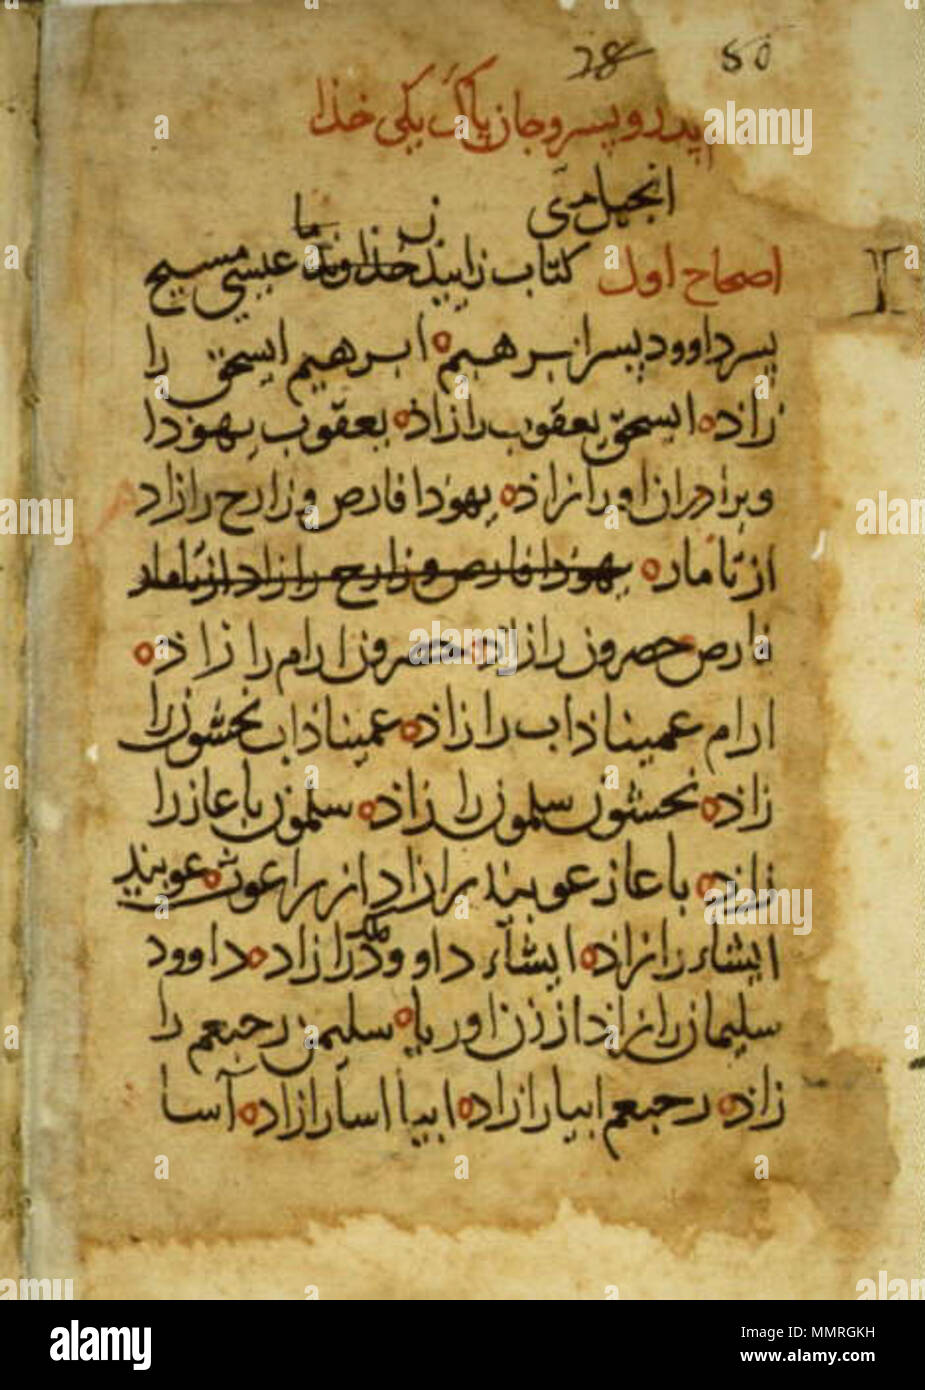 28 50
پدر و پسر و جان پاک یکی خذا
انجیل متی
اصحاح اول کتاب زایید خذاوند ما عیسی مسیح
پسر داوود پسر ابرهیم ابرهیم ایسحق را
زاذ ایسحق یعقوب را زاذ یعقوب یهوذا
و براذران او را زاذ یهوذا فارص و زارح را زاد
از تامار یهوذا فارص و زارح را زاد از تامار
فارص حصرون را زاذ حصرون ارام را زاذ
ارام عمیناذاب را زاذ عمیناذاب نحشون را
زاذ نحشون سلمون را زاذ سلمون باعاز را
زاذ باعاز عوبید را زاد از راعوث عوبید
ایشاء را زاذ ایشاء داوود ملک را زاذ داوود
سلیمان را زاذ از زن اوریا سلیمن رحبعم را
زاذ رحبعم ابیا را زاذ ابیا اسا را زاذ آسا
a alamy
alamy
Image ID: MMRGKH
www.alamy.com